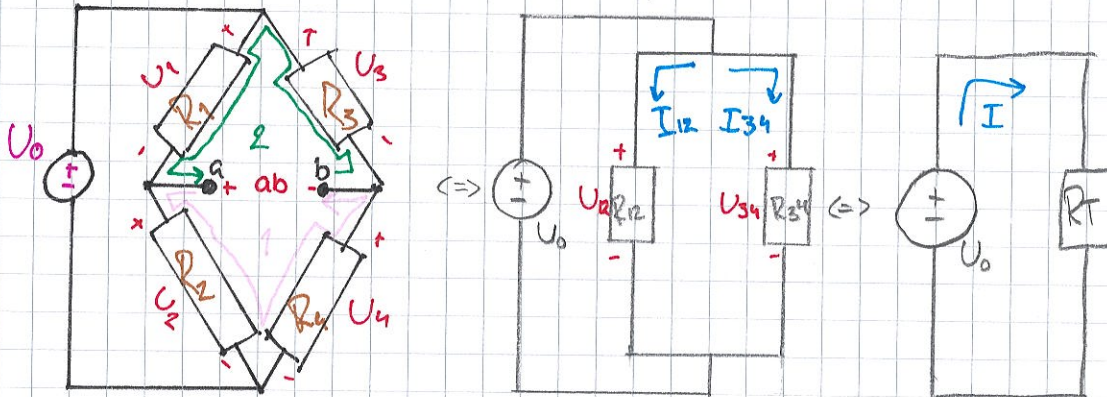 U0
+
-
U1
+
-
R1
+
-
U3
R3
2
a
+ ab -
b
1
+
-
U2
R2
+
-
U4
R4
<=>
+
-
U0
I12
I34
+
-
U12
R12
+
-
U34
R34
<=>
+
-
U0
I
RT